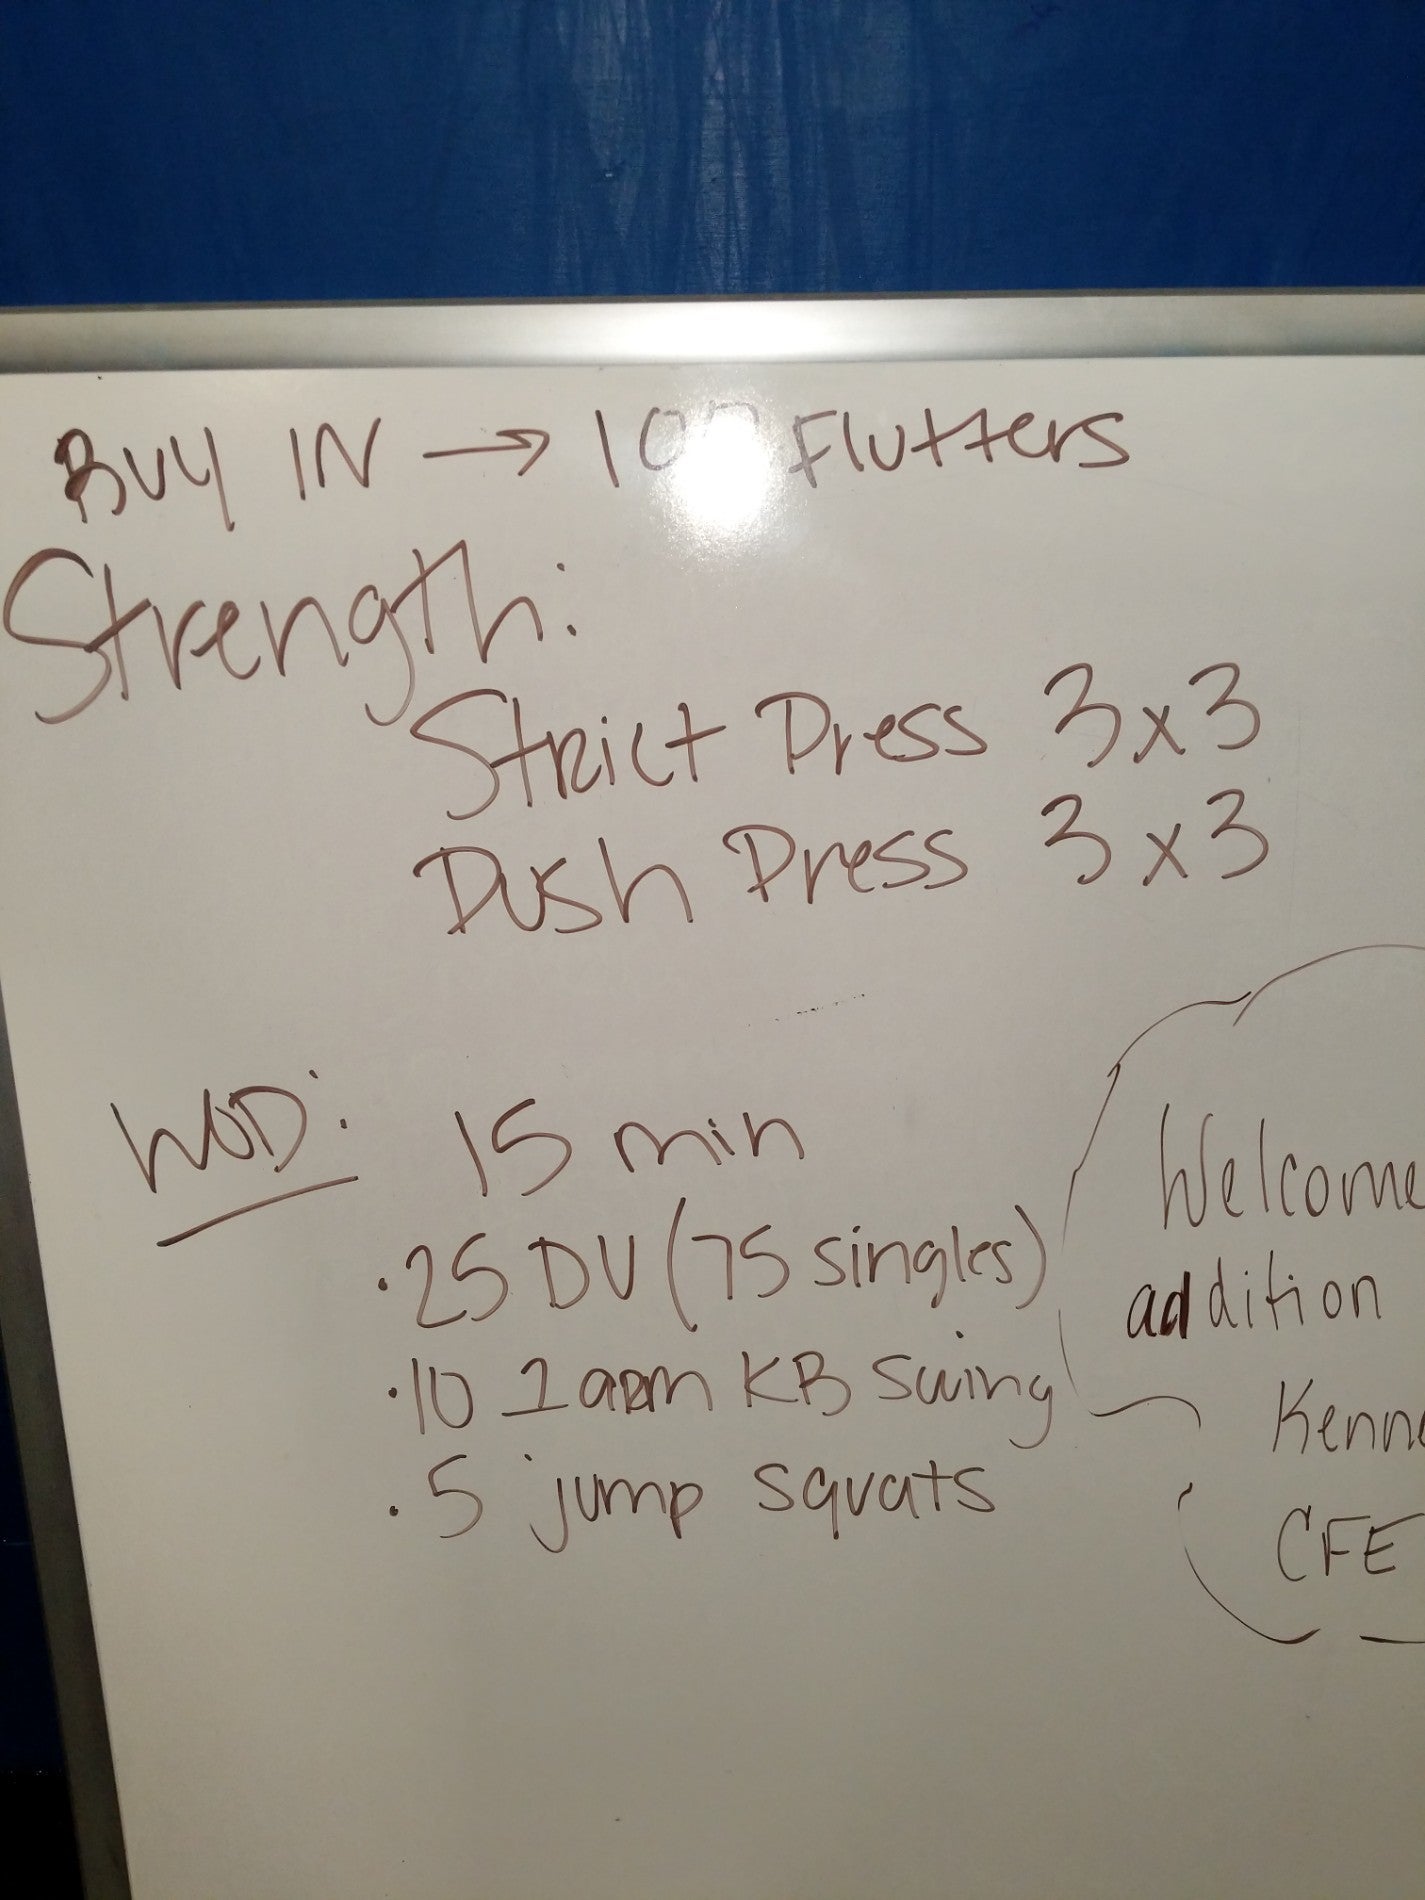 BUY IN → Flutters
Strength:
Strict Press 3x3
Push Press 3x3
WOD: 15 min
· 25 DU (75 singles)
· 10 1 arm KB swing
· 5 jump squats
Welcome
addition
Kenne
CFE